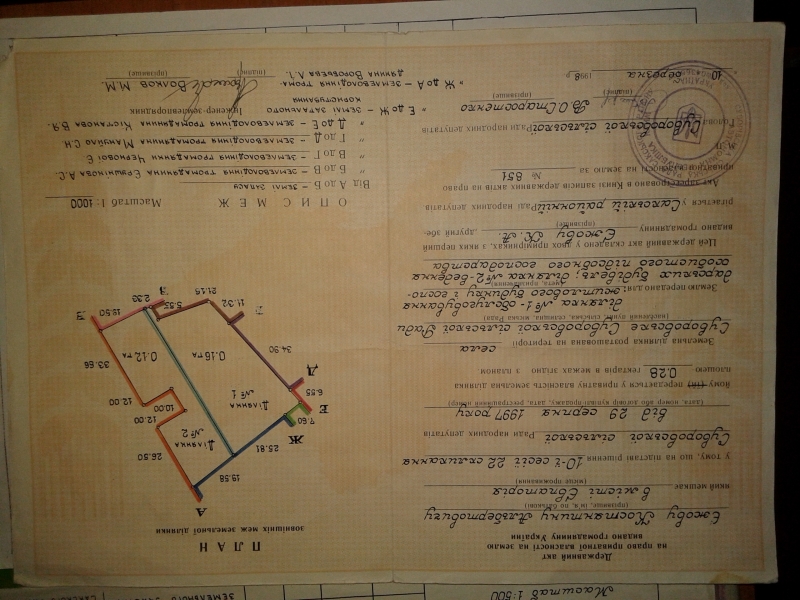 Державний акт
на право приватної власності на землю
видано громадянину України
Єжову Костянтину Альбертовичу
(прізвище, ім'я, по батькові)
який мешкає в місті Євпаторія
(місце проживання)
у тому, що на підставі рішення 10-ї сесії 22 скликання
Суворовської сільської Ради народних депутатів
від 29 серпня 1997 року
(дата, номер або договір купівлі-продажу, дата реєстрації, номер)
йому передається у приватну власність земельна ділянка
площею 0.28 гектарів в межах згідно з планом.
Земельна ділянка розташована на території села
Суворовське Суворовської сільської Ради
(населений пункт, сільська, селищна, міська Рада)
Землю передано для: ділянка №1-обслуговування
житлового будинку і госпо-
дарських будівель; ділянка №2-ведення
особистого підсобного господарства
Цей державний акт складено у двох примірниках, з яких перший
видано громадянину Єжову К. А. , другий збе-
(прізвище)
рігається у Сакській районній Раді народних депутатів
Акт зареєстровано в Книзі записів державних актів на право
приватної власності на землю за № 851
М.П.
Голова Суворовської сільської Ради народних депутатів
В.О.Старостенко
(підпис) (прізвище)
10 березня 1998 р.
ПЛАН
зовнішніх меж земельної ділянки
А
19.58
25.81
Ж
7.60
Е
6.55
Д
34.90
Г
11.32
21.15
5.55
В
2.33
18.50
Б
33.66
12.00
10.00
12.00
26.50
ДІЛЯНКА №2
0.12 га
ДІЛЯНКА №1
0.16 га
ОПИС МЕЖ
Масштаб 1: 1000
Від А до Б – ЗЕМЛІ ЗАПАСУ
" Б до В – ЗЕМЛЕВОЛОДІННЯ ГРОМАДЯНИНА А.С.
" В до Г – ЗЕМЛЕВОЛОДІННЯ ГРОМАДЯНИНА Є.
" Г до Д – ЗЕМЛЕВОЛОДІННЯ ГРОМАДЯНИНА С.Н.
" Д до Е – ЗЕМЛЕВОЛОДІННЯ ГРОМАДЯНИНА КІСТАНОВА В.Я.
" Е до Ж – ЗЕМЛІ ЗАГАЛЬНОГО КОРИСТУВАННЯ
" Ж до А – ЗЕМЛЕВОЛОДІННЯ ГРОМАДЯНИНА ВОРОБЬЕВА Л.І.
Інженер-землевпорядник
Волков М.М.
(підпис) (прізвище)
Масштаб 1:500
ЗЕМЕЛЬНОГО